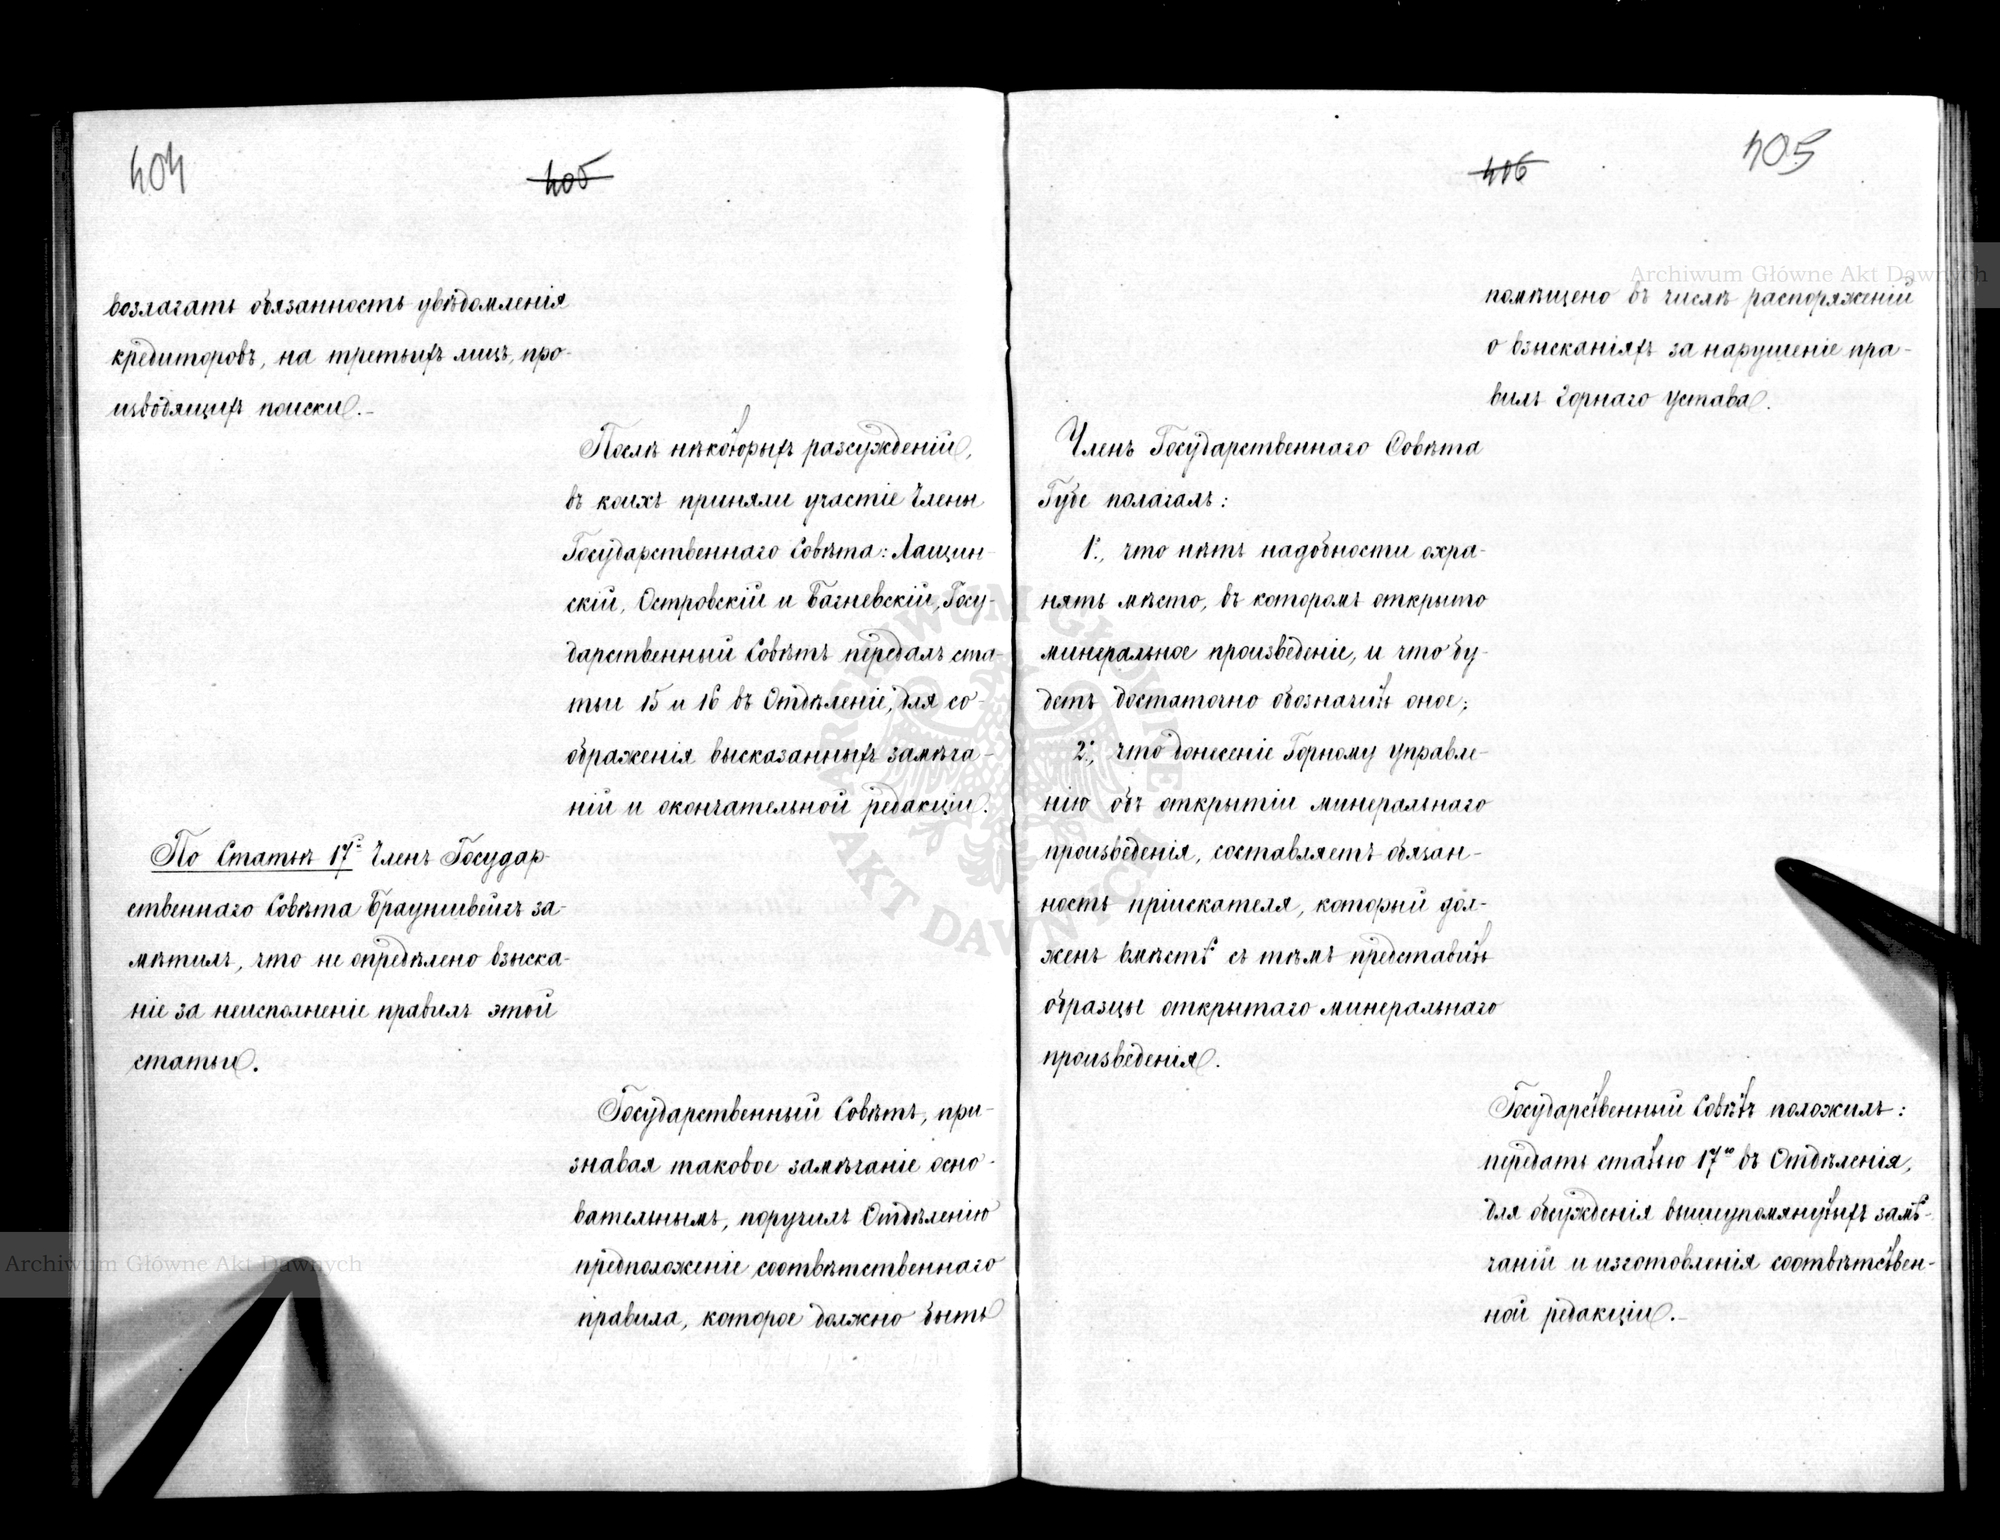 404
405
возлагать обязанность увѣдомленія
кредиторовъ, на третьихъ лицъ, про-
изводящихъ поиски.-
Послѣ нѣкоторыхъ разсужденій,
въ коихъ приняли участіе Члены
Государственнаго Совѣта: Лащин-
скій, Островскій и Багневскій, Госу-
дарственный Совѣтъ передалъ ста-
тьи 15 и 16 въ Отдѣленіе, для со-
ображенія высказанныхъ замѣча-
ній и окончательной редакціи.
По Статьѣ 17й Членъ Государ-
ственнаго Совѣта Брауншвейгъ за-
мѣтилъ, что не опредѣлено взыска-
ніе за неисполненіе правилъ этой
статьи.
Государственный Совѣтъ, при-
знавая таковое замѣчаніе осно-
вательнымъ, поручилъ Отдѣленію
предположеніе соотвѣтственнаго
правила, которое должно быть
406
405
помѣщено въ числѣ распоряженій
о взысканіяхъ за нарушеніе пра-
вилъ Горнаго Устава.
Членъ Государственнаго Совѣта
Губе полагалъ:
1е, что нѣтъ надобности охра-
нять мѣсто, въ которомъ открыто
минеральное произведеніе, и что бу-
детъ достаточно обозначить оное;
2е, что донесеніе Горному управле-
нію объ открытіи минеральнаго
произведенія, составляетъ обязан-
ность пріискателя, который дол-
женъ вмѣстѣ съ тѣмъ представить
образцы открытаго минеральнаго
произведенія.
Государственный Совѣтъ положилъ:
передать статью 17ю въ Отдѣленія,
для обсужденія вышеупомянутыхъ замѣ-
чаній и изготовленія соотвѣтствен-
ной редакціи.-
Archiwum Główne Akt Dawnych
Archiwum Główne Akt Dawnych
ARCHIWUM GŁÓWNE AKT DAWNYCH